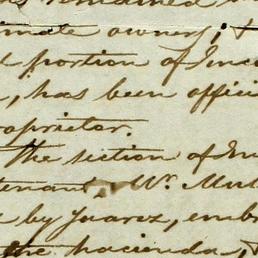 remained
owners; &
portion of
, has been offici
roprietor.
the section of
tenant, Wr. Mul
by Juarez, embr
the hacienda, &